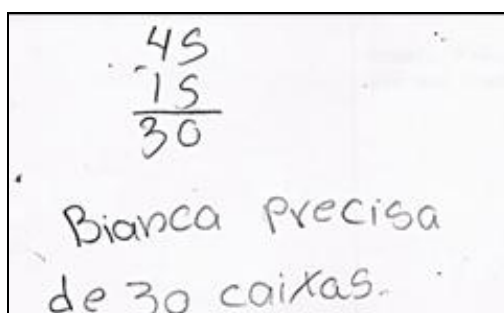 45
-15
30
Bianca precisa
de 30 caixas.